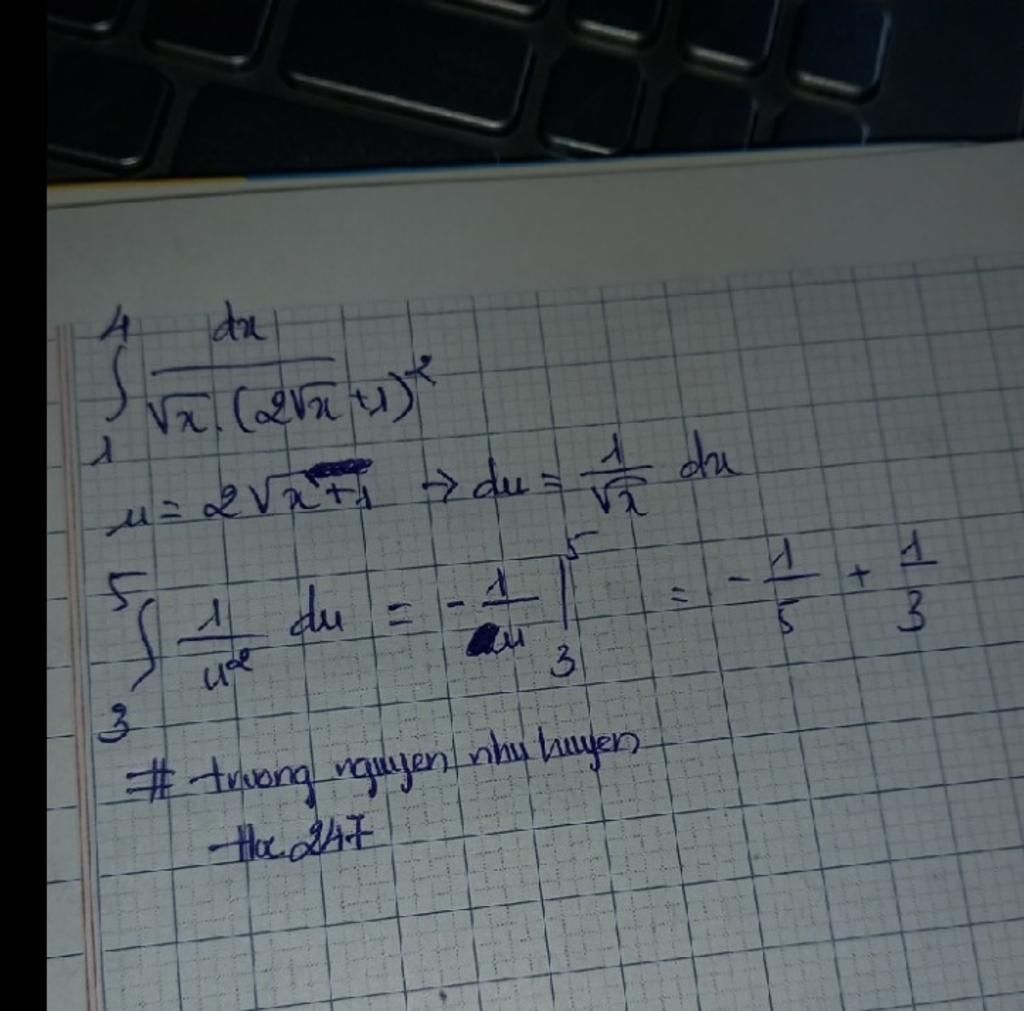 ∫₁⁴ dx / √x.(2√x+1)²
u = 2√x+1 → du = 1/√x dx
∫₃⁵ 1/u² du = -1/u |₃⁵ = -1/5 + 1/3
# truong nguyen nhu huyen
247